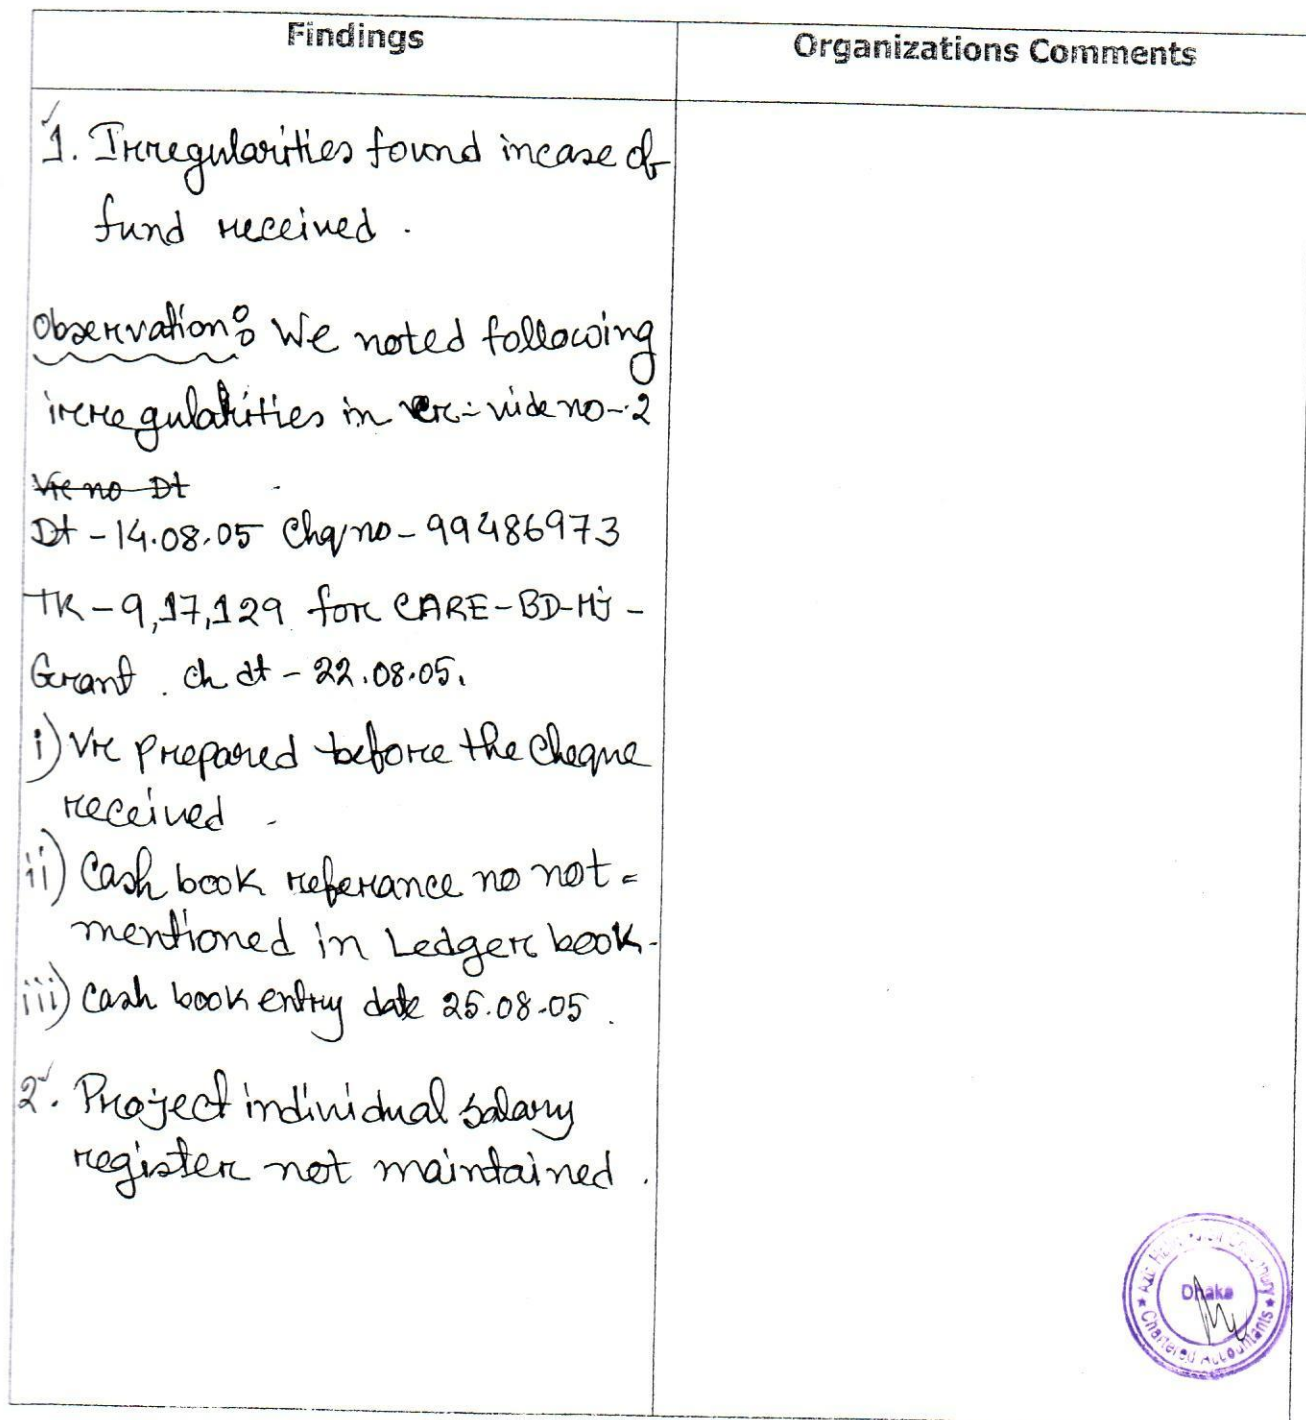 Findings
Organizations Comments
1. Irregularities found incase of
fund received.
Observation: We noted following
irregularities in vr-vide no-2
Vr no Dt
Dt-14.08.05 Chq no-99486973
TK-9,17,129 for CARE-BD-MJ-
Grant. ch dt-22.08.05.
i) Vr prepared before the cheque
received.
ii) Cash book referance no not=
mentioned in Ledger book-
iii) Cash book entry date 25.08.05.
2. Project individual salary
register not maintained.
Dhaka
Chartered Accountants